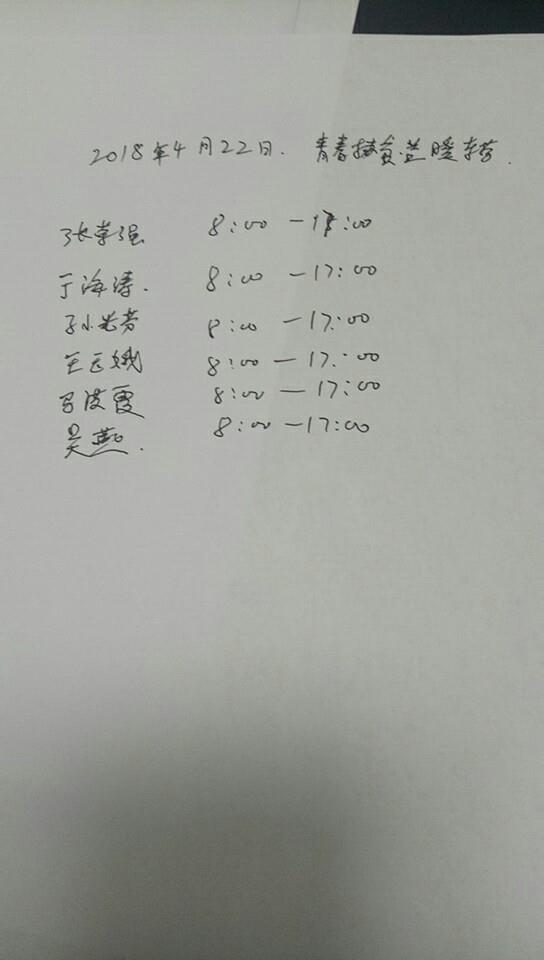 2018年4月22日. 青春扶贫益暖
张 强 8:00 — 17:00
于海涛. 8:00 — 17:00
孙小 芳 8:00 — 17:00
王云娥 8:00 — 17:00
马 霞 8:00 — 17:00
吴燕. 8:00 — 17:00